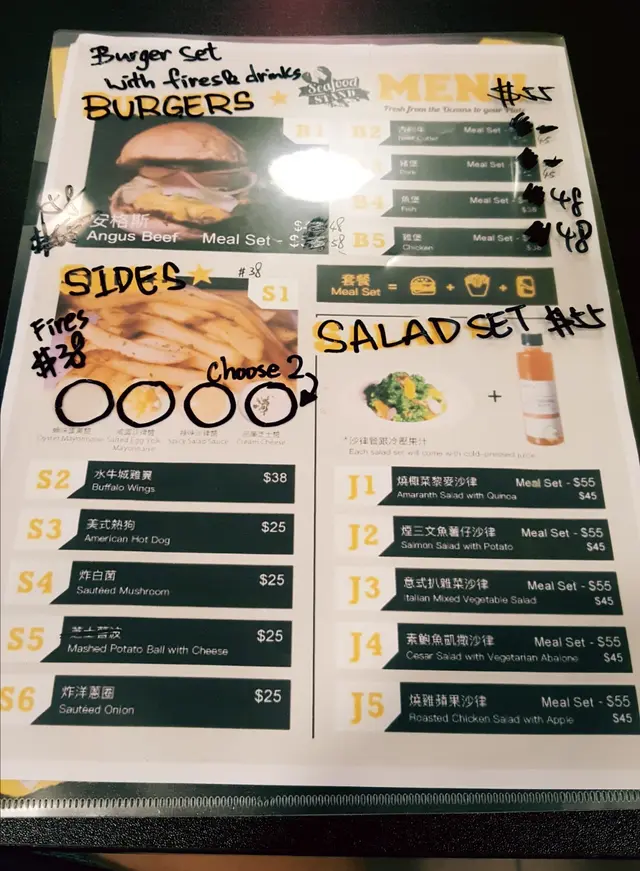 Burger Set
with fires & drinks
BURGERS
Seafood
STAND
MENU
$55
Fresh from the Oceans to your Plate
B1
安格斯
Angus Beef Meal Set - $
48
58
B2
Meal Set - $
Meal Set - $
Pork
B4 魚堡 Meal Set - $ 48
Fish
B5 雞堡 Meal Set - $ 48
Chicken $38
套餐
Meal Set = + +
SIDES
#38
S1
Fires
$38
Choose 2
Salted Egg Yolk
Mayonnaise
Spicy Salad Sauce
Cream Cheese
S2 水牛城雞翼 $38
Buffalo Wings
S3 美式熱狗 $25
American Hot Dog
S4 炸白菌 $25
Sautéed Mushroom
S5 芝士薯波 $25
Mashed Potato Ball with Cheese
S6 炸洋蔥圈 $25
Sautéed Onion
SALAD SET $55
+
*沙律會跟冷壓果汁
Each salad set will come with cold-pressed juice
J1 燒椰菜黎麥沙律 Meal Set - $55
Amaranth Salad with Quinoa $45
J2 煙三文魚薯仔沙律 Meal Set - $55
Salmon Salad with Potato $45
J3 意式扒雜菜沙律 Meal Set - $55
Italian Mixed Vegetable Salad $45
J4 素鮑魚凱撒沙律 Meal Set - $55
Cesar Salad with Vegetarian Abalone $45
J5 燒雞蘋果沙律 Meal Set - $55
Roasted Chicken Salad with Apple $45